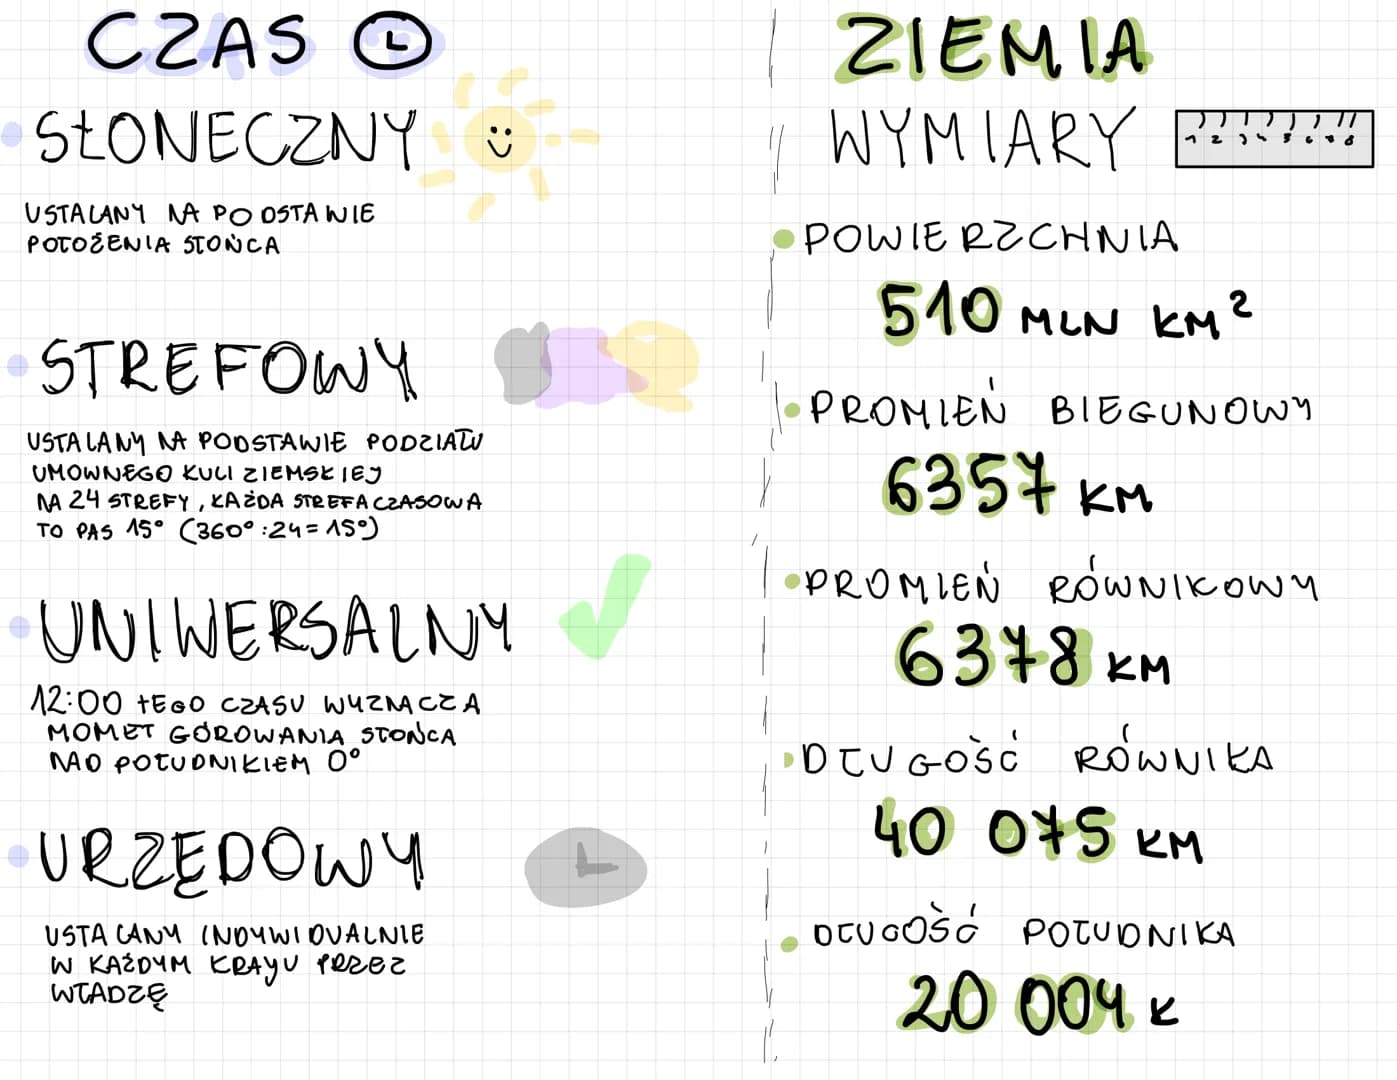 CZAS
SŁONECZNY
USTALANY NA PODSTAWIE
POŁOŻENIA SŁOŃCA
STREFOWY
USTALANY NA PODSTAWIE PODZIAŁU
UMOWNEGO KULI ZIEMSKIEJ
NA 24 STREFY, KAŻDA STREFA CZASOWA
TO PAS 15° (360°:24=15°)
UNIWERSALNY
12:00 TEGO CZASU WYZNACZA
MOMET GÓROWANIA SŁOŃCA
NAD POŁUDNIKIEM 0°
URZĘDOWY
USTALANY INDYWIDUALNIE
W KAŻDYM KRAYU PRZEZ
WŁADZĘ
ZIEMIA
WYMIARY
1 2 3 4 5 6 7 8
POWIERZCHNIA
510 MLN KM²
PROMIEŃ BIEGUNOWY
6357 KM
PROMIEŃ RÓWNIKOWY
6378 KM
DŁUGOŚĆ RÓWNIKA
40 075 KM
DŁUGOŚĆ POŁUDNIKA
20 004 K